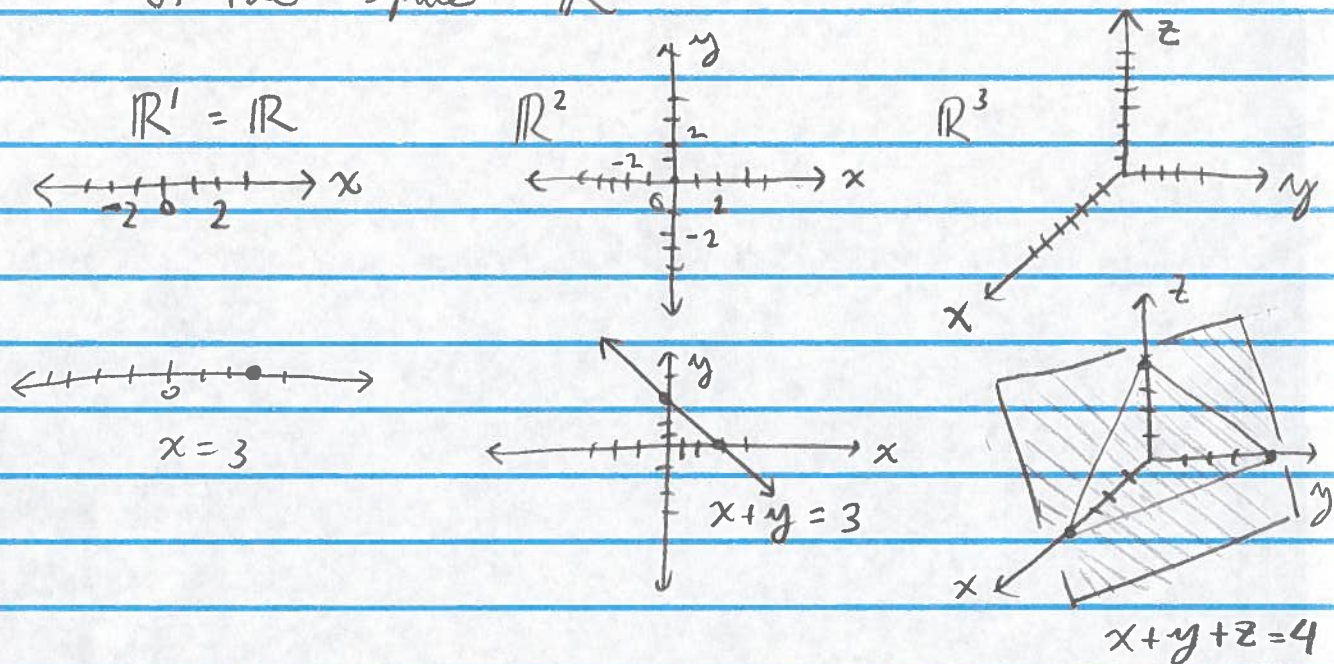 ℝ
ℝ¹ = ℝ
x
-2 0 2
ℝ²
y
2
-2
x
0 2
-2
ℝ³
z
y
x
0
x = 3
y
x
x + y = 3
z
y
x
x + y + z = 4